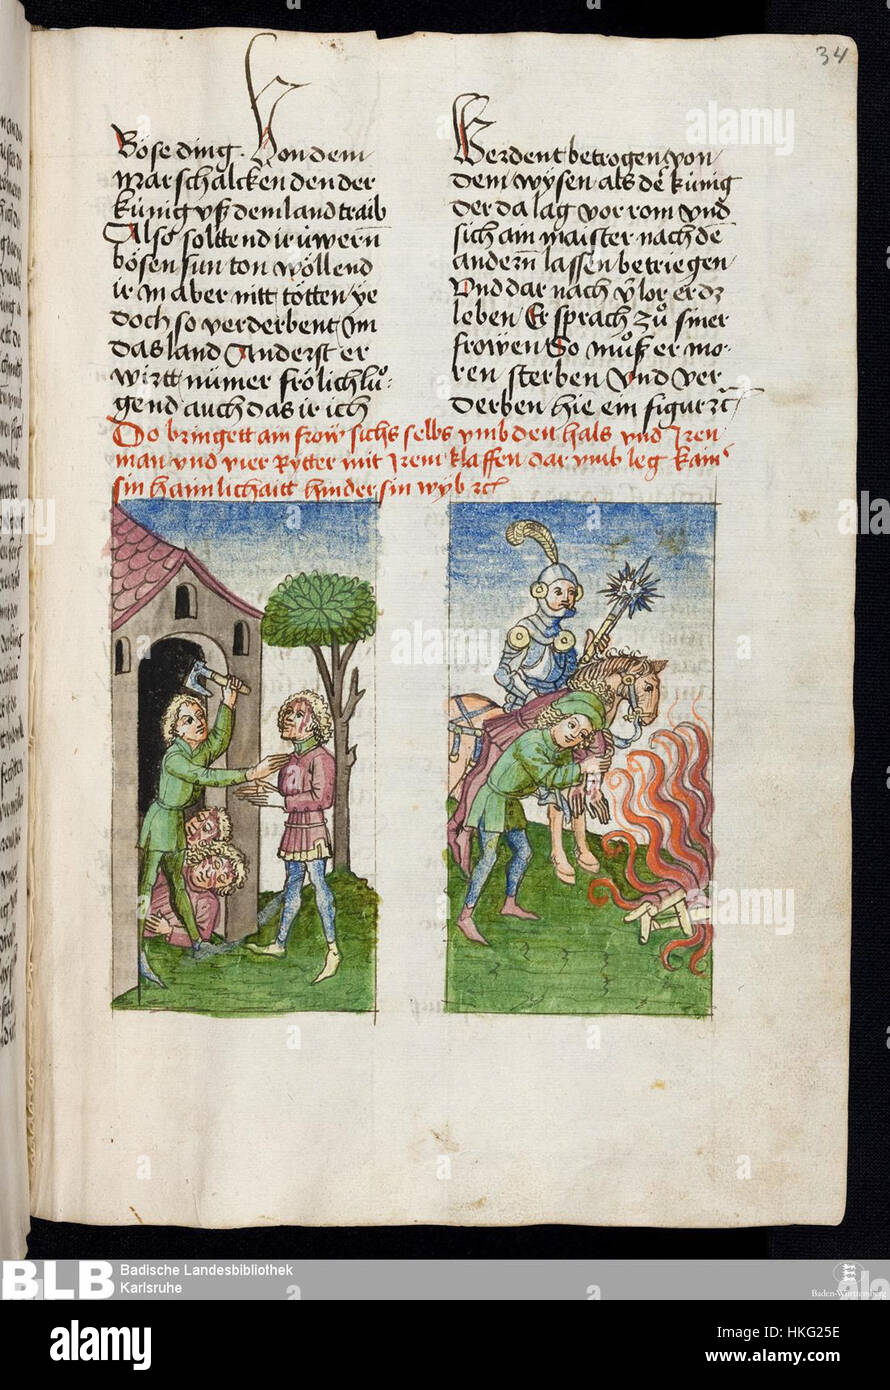 34
Böse ding · Von dem
Marschalcken den der
künig vß dem land traib
Also solttend ir üwern̄
bösen sun ton wöllend
ir in aber nitt tötten ye
doch so verderbent Im
das land Anderst er
wirtt nümer frölich lu°-
gend auch das ir ich
Werdent betrogen von
dem wysen als dē künig
der da lag vor rom vnd
sich ain maister nach dē
andern̄ lassen betriegen
Vnd dar nach v̊lor er dz
leben Er sprach zu° siner
frowen So mu°ß er mo-
ren sterben Vnd ver
derben hie ein figur ꝛc
Do bringett ain frow sichs selbs vmb den hals vnd Iren
man vnd vier Rytter mit Irem klaffen dar vmb leg kain
sin haimlichaitt hinder sin wyb ꝛc
BLB Badische Landesbibliothek
Karlsruhe
Baden-Württemberg
alamy
Image ID: HKG25E
www.alamy.com